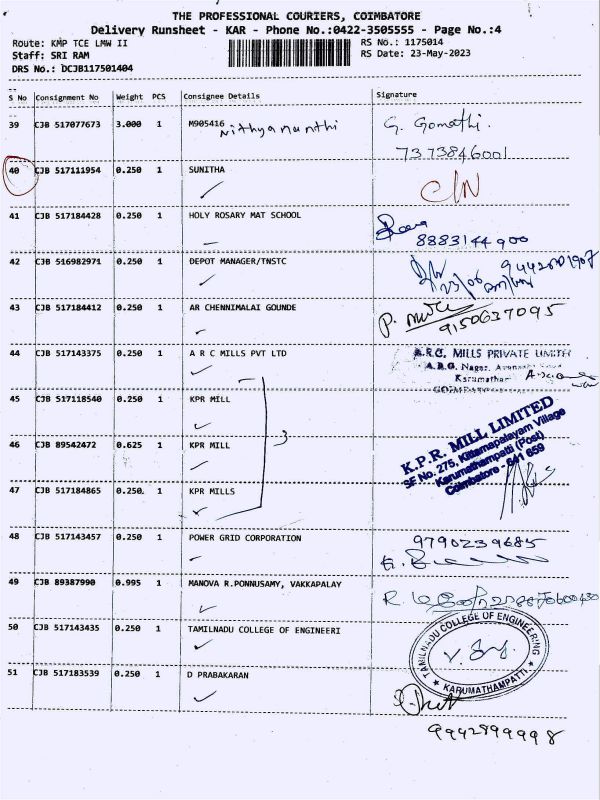 THE PROFESSIONAL COURIERS, COIMBATORE
Delivery Runsheet - KAR - Phone No.:0422-3505555 - Page No.:4
Route: KMP TCE LMW II RS No.: 1175014
Staff: SRI RAM RS Date: 23-May-2023
DRS No.: DCJB117501404
S No Consignment No Weight PCS Consignee Details Signature
39 CJB 517077673 3.000 1 M905416 Nithyananthi G. Gomathi.
7373846001
40 CJB 517111954 0.250 1 SUNITHA C/N
41 CJB 517184428 0.250 1 HOLY ROSARY MAT SCHOOL
8883144900
42 CJB 516982971 0.250 1 DEPOT MANAGER/TNSTC
43 CJB 517184412 0.250 1 AR CHENNIMALAI GOUNDE P.
9150637095
44 CJB 517143375 0.250 1 A R C MILLS PVT LTD A.R.C. MILLS PRIVATE LIMITED
A.R.G. Nagar,
Karumathan
45 CJB 517118540 0.250 1 KPR MILL
3
K.P.R. MILL LIMITED
SF No. 275, Kittampalayam Village
Karumathampatti (Post)
Coimbatore - 641 659
46 CJB 89542472 0.625 1 KPR MILL
47 CJB 517184865 0.250 1 KPR MILLS
48 CJB 517143457 0.250 1 POWER GRID CORPORATION 9790239685
49 CJB 89387990 0.995 1 MANOVA R.PONNUSAMY, VAKKAPALAY R.
50 CJB 517143435 0.250 1 TAMILNADU COLLEGE OF ENGINEERI
TAMILNADU COLLEGE OF ENGINEERING
★ KARUMATHAMPATTI ★
51 CJB 517183539 0.250 1 D PRABAKARAN
9942899998